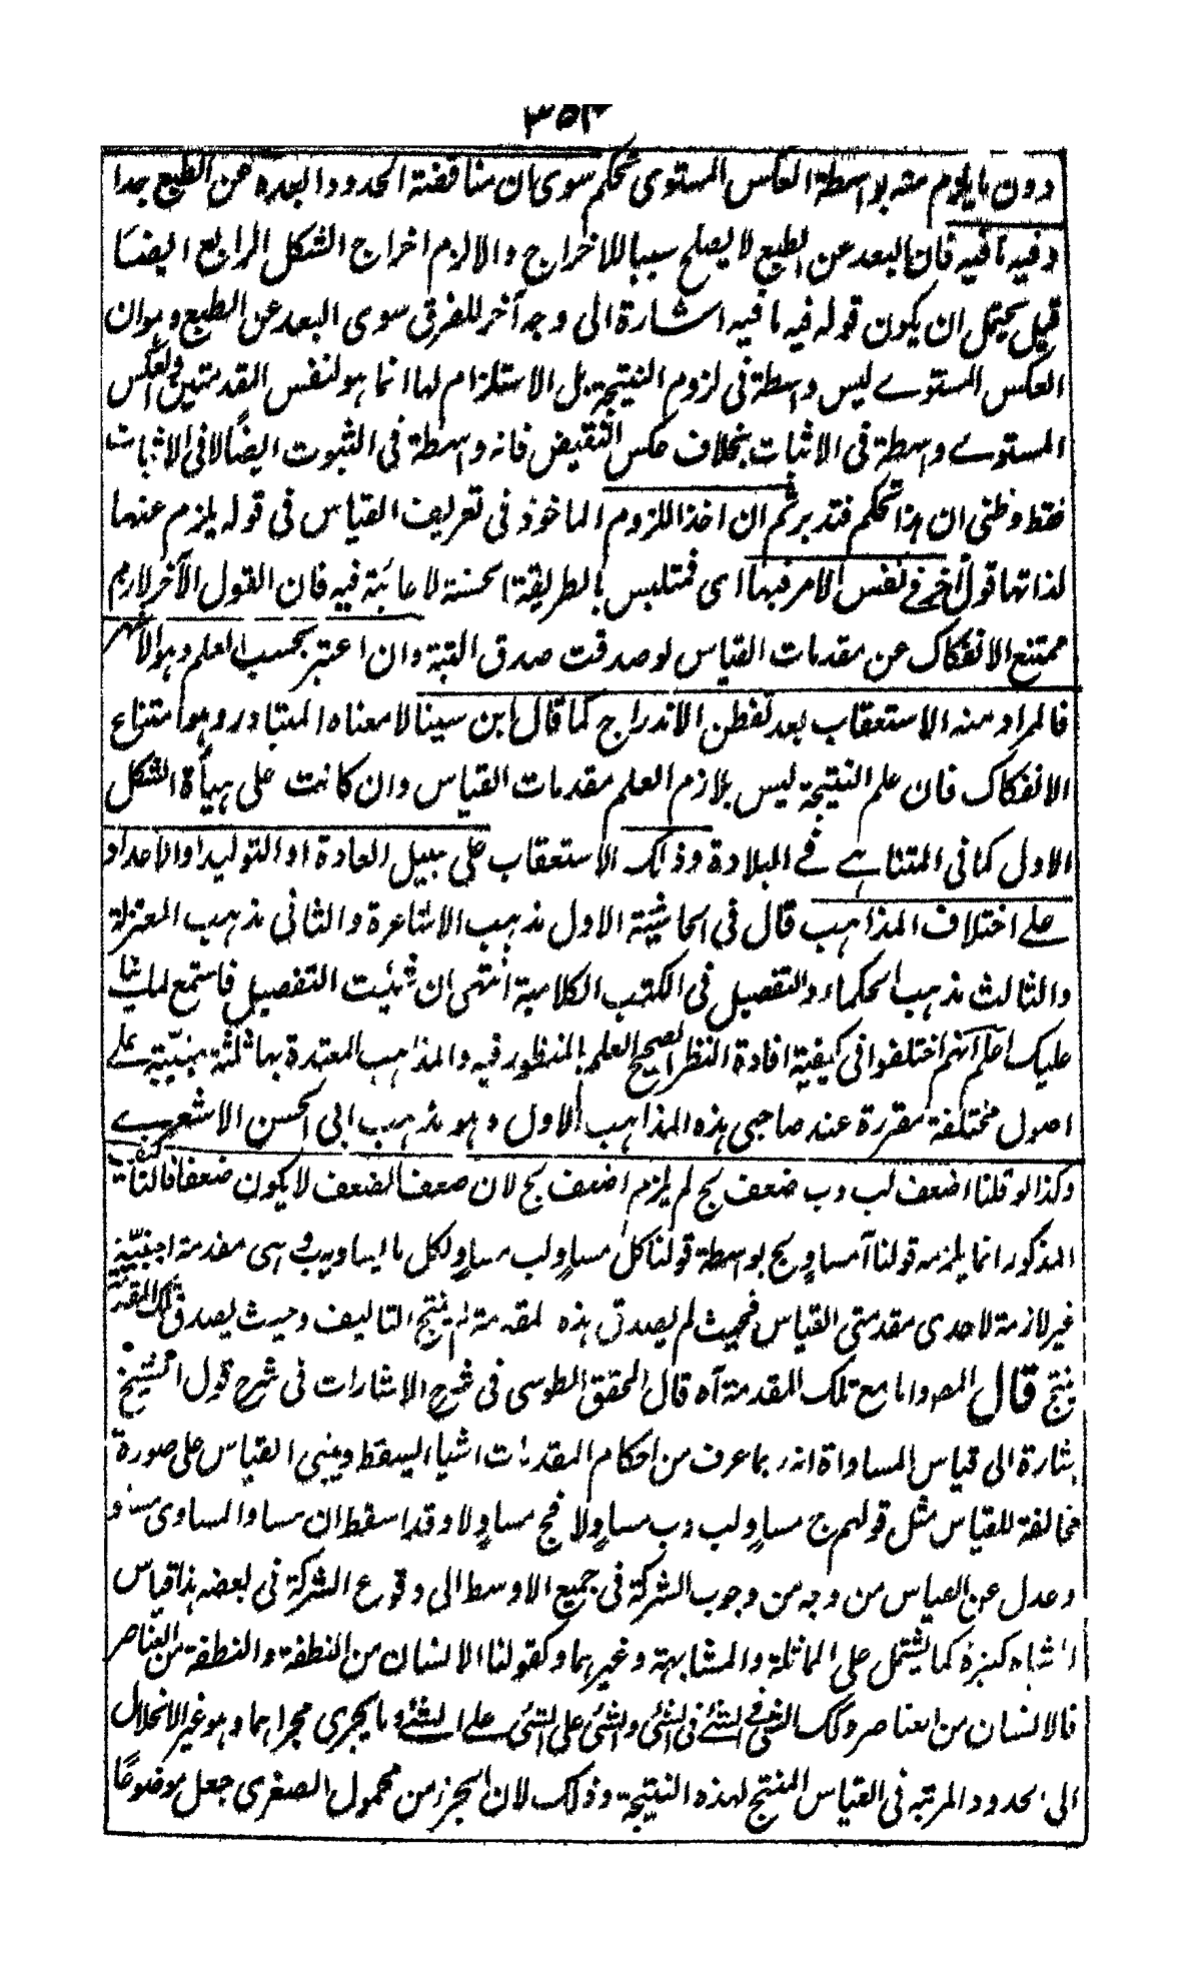 ٣٥٣
دون ما يلزم منه بواسطة العكس المستوى تحكم سوى ان مناقضة الحدود ابعده عن الطبع جدا
وفيه ما فيه فان البعد عن الطبع لا يصلح سببا للاخراج والا لزم اخراج الشكل الرابع ايضا
قيل يحتمل ان يكون قوله فيه ما فيه اشارة الى وجه آخر للفرق سوى البعد عن الطبع وهو ان
العكس المستوے ليس واسطة فى لزوم النتيجة بل الاستلزام لها انما هو لنفس المقدمتين والعكس
المستوے واسطة فى الاثبات بخلاف عكس النقيض فانه واسطة فى الثبوت ايضًا لا فى الاثبات
فقط وظنى ان هذا تحكم فتدبر ثم ان اخذ اللزوم الماخوذ فى تعريف القياس فى قوله يلزم عنها
لذاتها قول آخر فے نفس الامر فبها اى فمتلبس بالطريقة الحسنة لا عائبة فيه فان القول الآخر لازم
ممتنع الانفكاك عن مقدمات القياس لو صدقت صدق البتة وان اعتبر بحسب العلم وهو الاظهر
فالمراد منه الاستعقاب بعد تفطن الاندراج كما قال ابن سينا لا معناه المتبادر وهو امتناع
الانفكاك فان علم النتيجة ليس بلازم العلم مقدمات القياس وان كانت على هيأة الشكل
الاول كما فى المتناہے فے البلادة وذلك الاستعقاب على سبيل العادة او التوليد او الاعداد
علے اختلاف المذاهب قال فى الحاشية الاول مذهب الاشاعرة والثانى مذهب المعتزلة
والثالث مذهب الحكماء والتفصيل فى الكتب الكلامية انتهى ان شئيت التفصيل فاستمع لما يتلى
عليك اعلم انهم اختلفوا فى كيفية افادة النظر الصحيح العلم بالمنظور فيه والمذاهب المعتدة بها ثلثة مبنيّة علے
اصول مختلفة مقررة عند صاحبى هذه المذاهب الاول وهو مذهب ابى الحسن الاشعرے
وكذا لو قلنا ا ضعف لب وب ضعف لج لم يلزم ا ضعف لج لان ضعف الضعف لا يكون ضعفا فالتاليف
المذكور انما يلزمه قولنا آ مساوٍ لج بواسطة قولنا كل مساوٍ لب مساوٍ لكل ما يساويه ب وهى مقدمة اجنبيّة
غير لازمة لاحدى مقدمتى القياس فحيث لم يصدق هذه المقدمة لم ينتج التاليف وحيث يصدق تلك المقدمة
ينتج قال المصـ واما مع تلك المقدمة آه قال المحقق الطوسى فى شرح الاشارات فى شرح قول الشيخ
اشارة الى قياس المساواة انه ربما عرف من احكام المقدمات اشيا ليسقط ويبنى القياس على صورة
مخالفة للقياس مثل قولهم ج مساوٍ لب وب مساوٍ لا فج مساوٍ لا وقد اسقط ان مساو المساوى مساو
وعدل عن القياس من وجه من وجوب الشركة فى جميع الاوسط الى وقوع الشركة فى بعضه هذا قياس
اشباه كثيرة كما يشتمل على المماثلة والمشابهة وغيرهما وكقولنا الانسان من النطفة والنطفة من العناصر
فالانسان من العناصر وكك الشئ فے الشئے فى الشئ والشئ على الشئ علے الشئے وما يجرى مجراهما وهو غير الانحلال
الى الحدود المرتبه فى القياس المنتج لهذه النتيجة وذلك لان الجزء من محمول الصغرى جعل موضوعًا